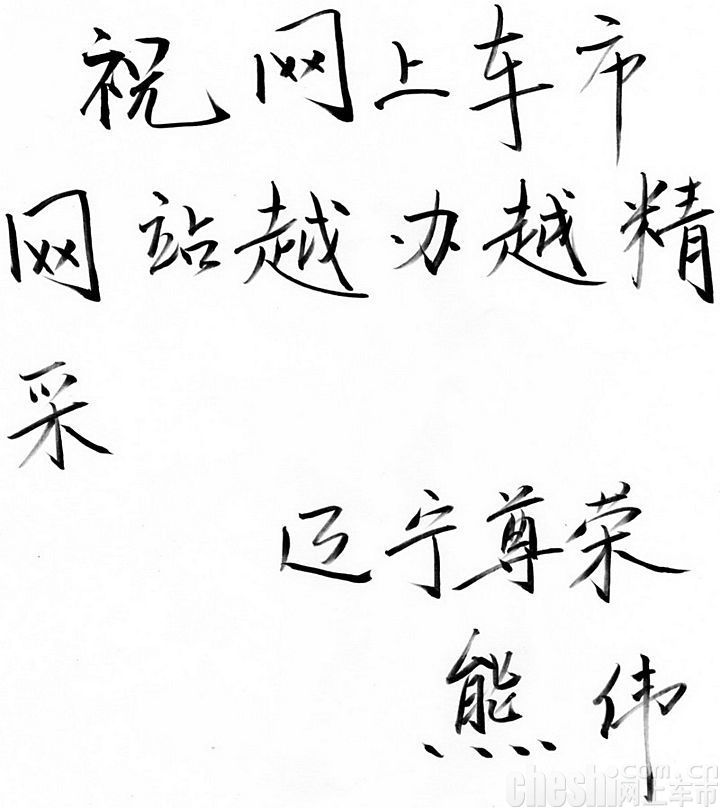 祝网上车市
网站越办越精
采
辽宁尊荣
熊伟
.com.cn
cheshi网上车市